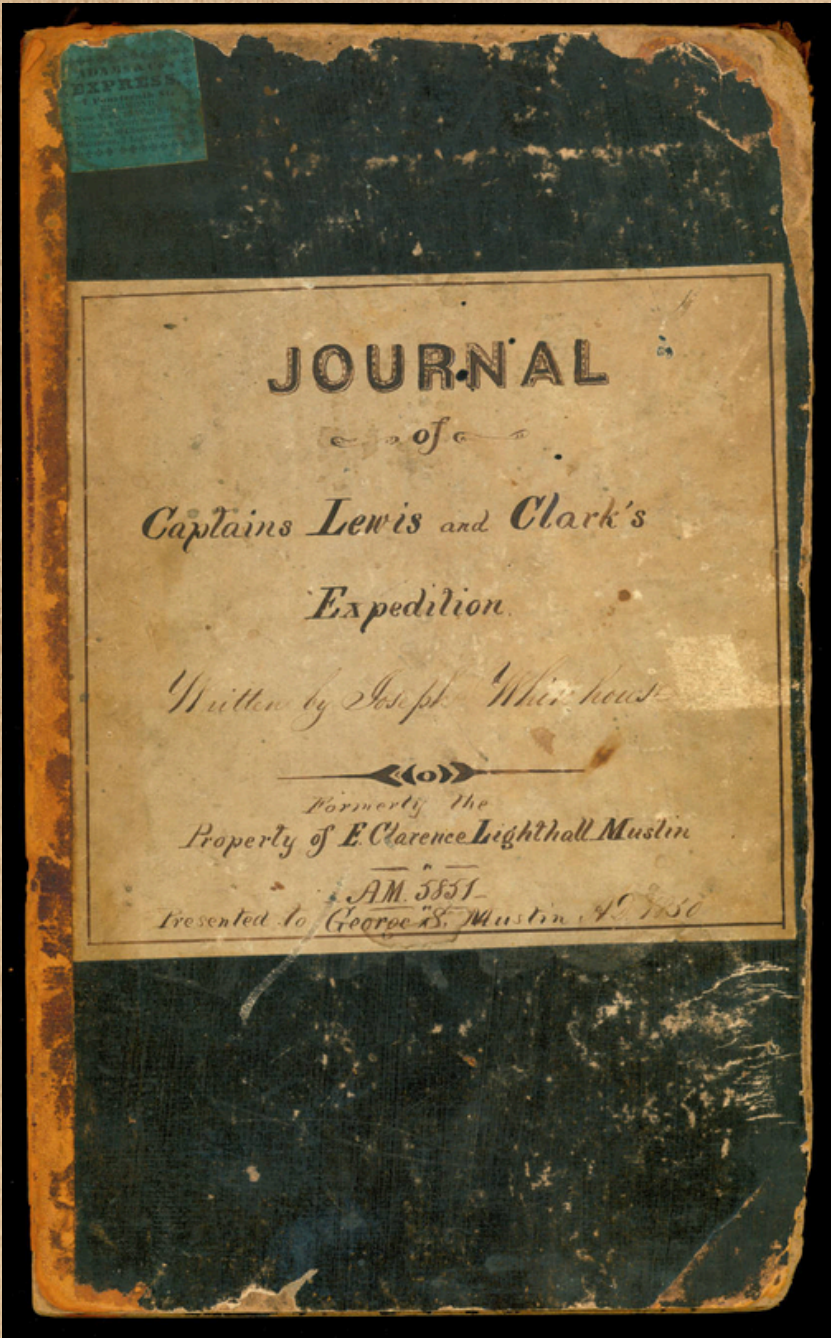 EXPRESS
JOURNAL
of
Captains Lewis and Clark's
Expedition.
Written by Joseph Whitehouse
Formerly the
Property of E. Clarence Lighthall Mustin
A.M. 5851
Presented to George S. Mustin A.D. 1850